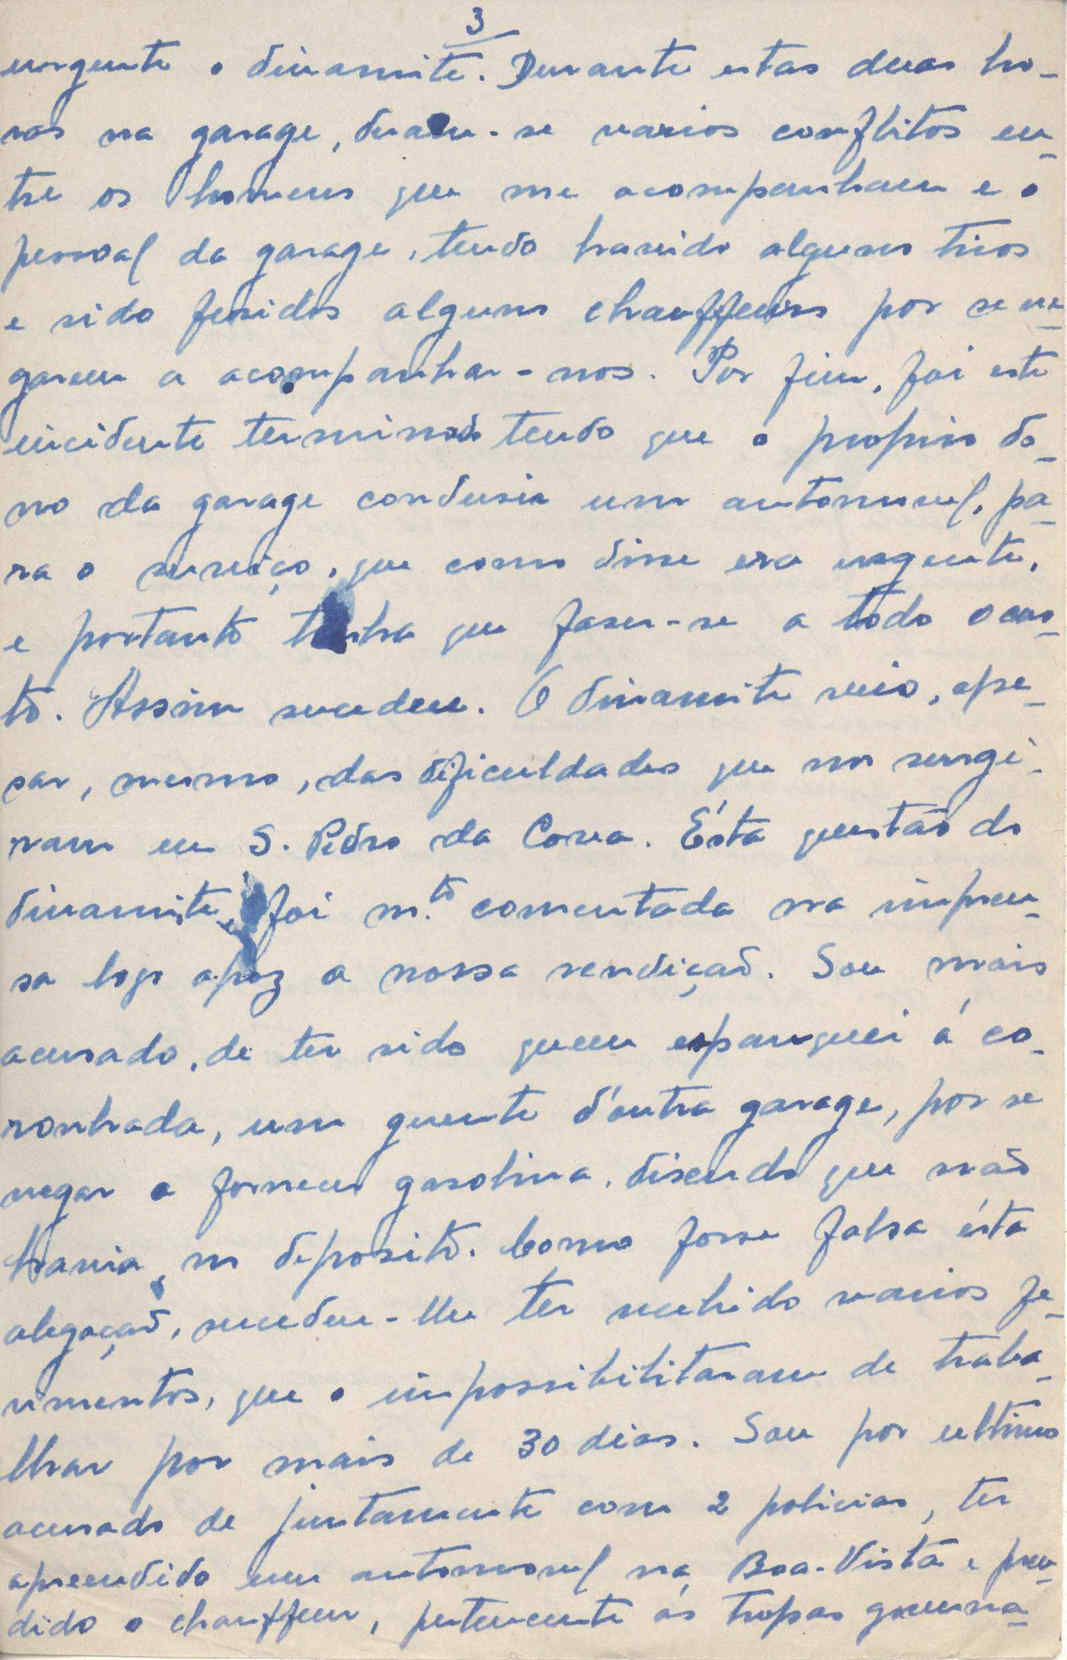 3
urgente o dinamite. Durante estas duas ho-
ras na garage, deram-se varios conflitos en-
tre os homens que me acompanham e o
pessoal da garage, tendo havido alguns tiros
e sido feridos alguns chauffeurs por se ne-
garem a acompanhar-nos. Por fim, foi este
incidente terminado tendo que o proprio do-
no da garage condusir um automovel, pa-
ra o serviço, que como disse era urgente,
e portanto tinha que faser-se a todo o cus-
to. Assim sucedeu. O dinamite veio, ape-
sar, mesmo, das dificuldades que nos surgi-
ram em S. Pedro da Cova. Ésta questão do
dinamite, foi m.to comentada na impren-
sa logo apoz a nossa rendição. Sou mais
acusado, de ter sido quem espanquei á co-
ronhada, um gerente d'outra garage, por se
negar a fornecer gasolina, disendo que não
havia no deposito. Como fosse falsa ésta
alegação, sucedeu-lhe ter recebido varios fe-
rimentos, que o impossibilitaram de traba-
lhar por mais de 30 dias. Sou por ultimo
acusado de juntamente com 2 policias, ter
apreendido um automovel na Boa-Vista e pren-
dido o chauffeur, pertencente ás tropas governa-